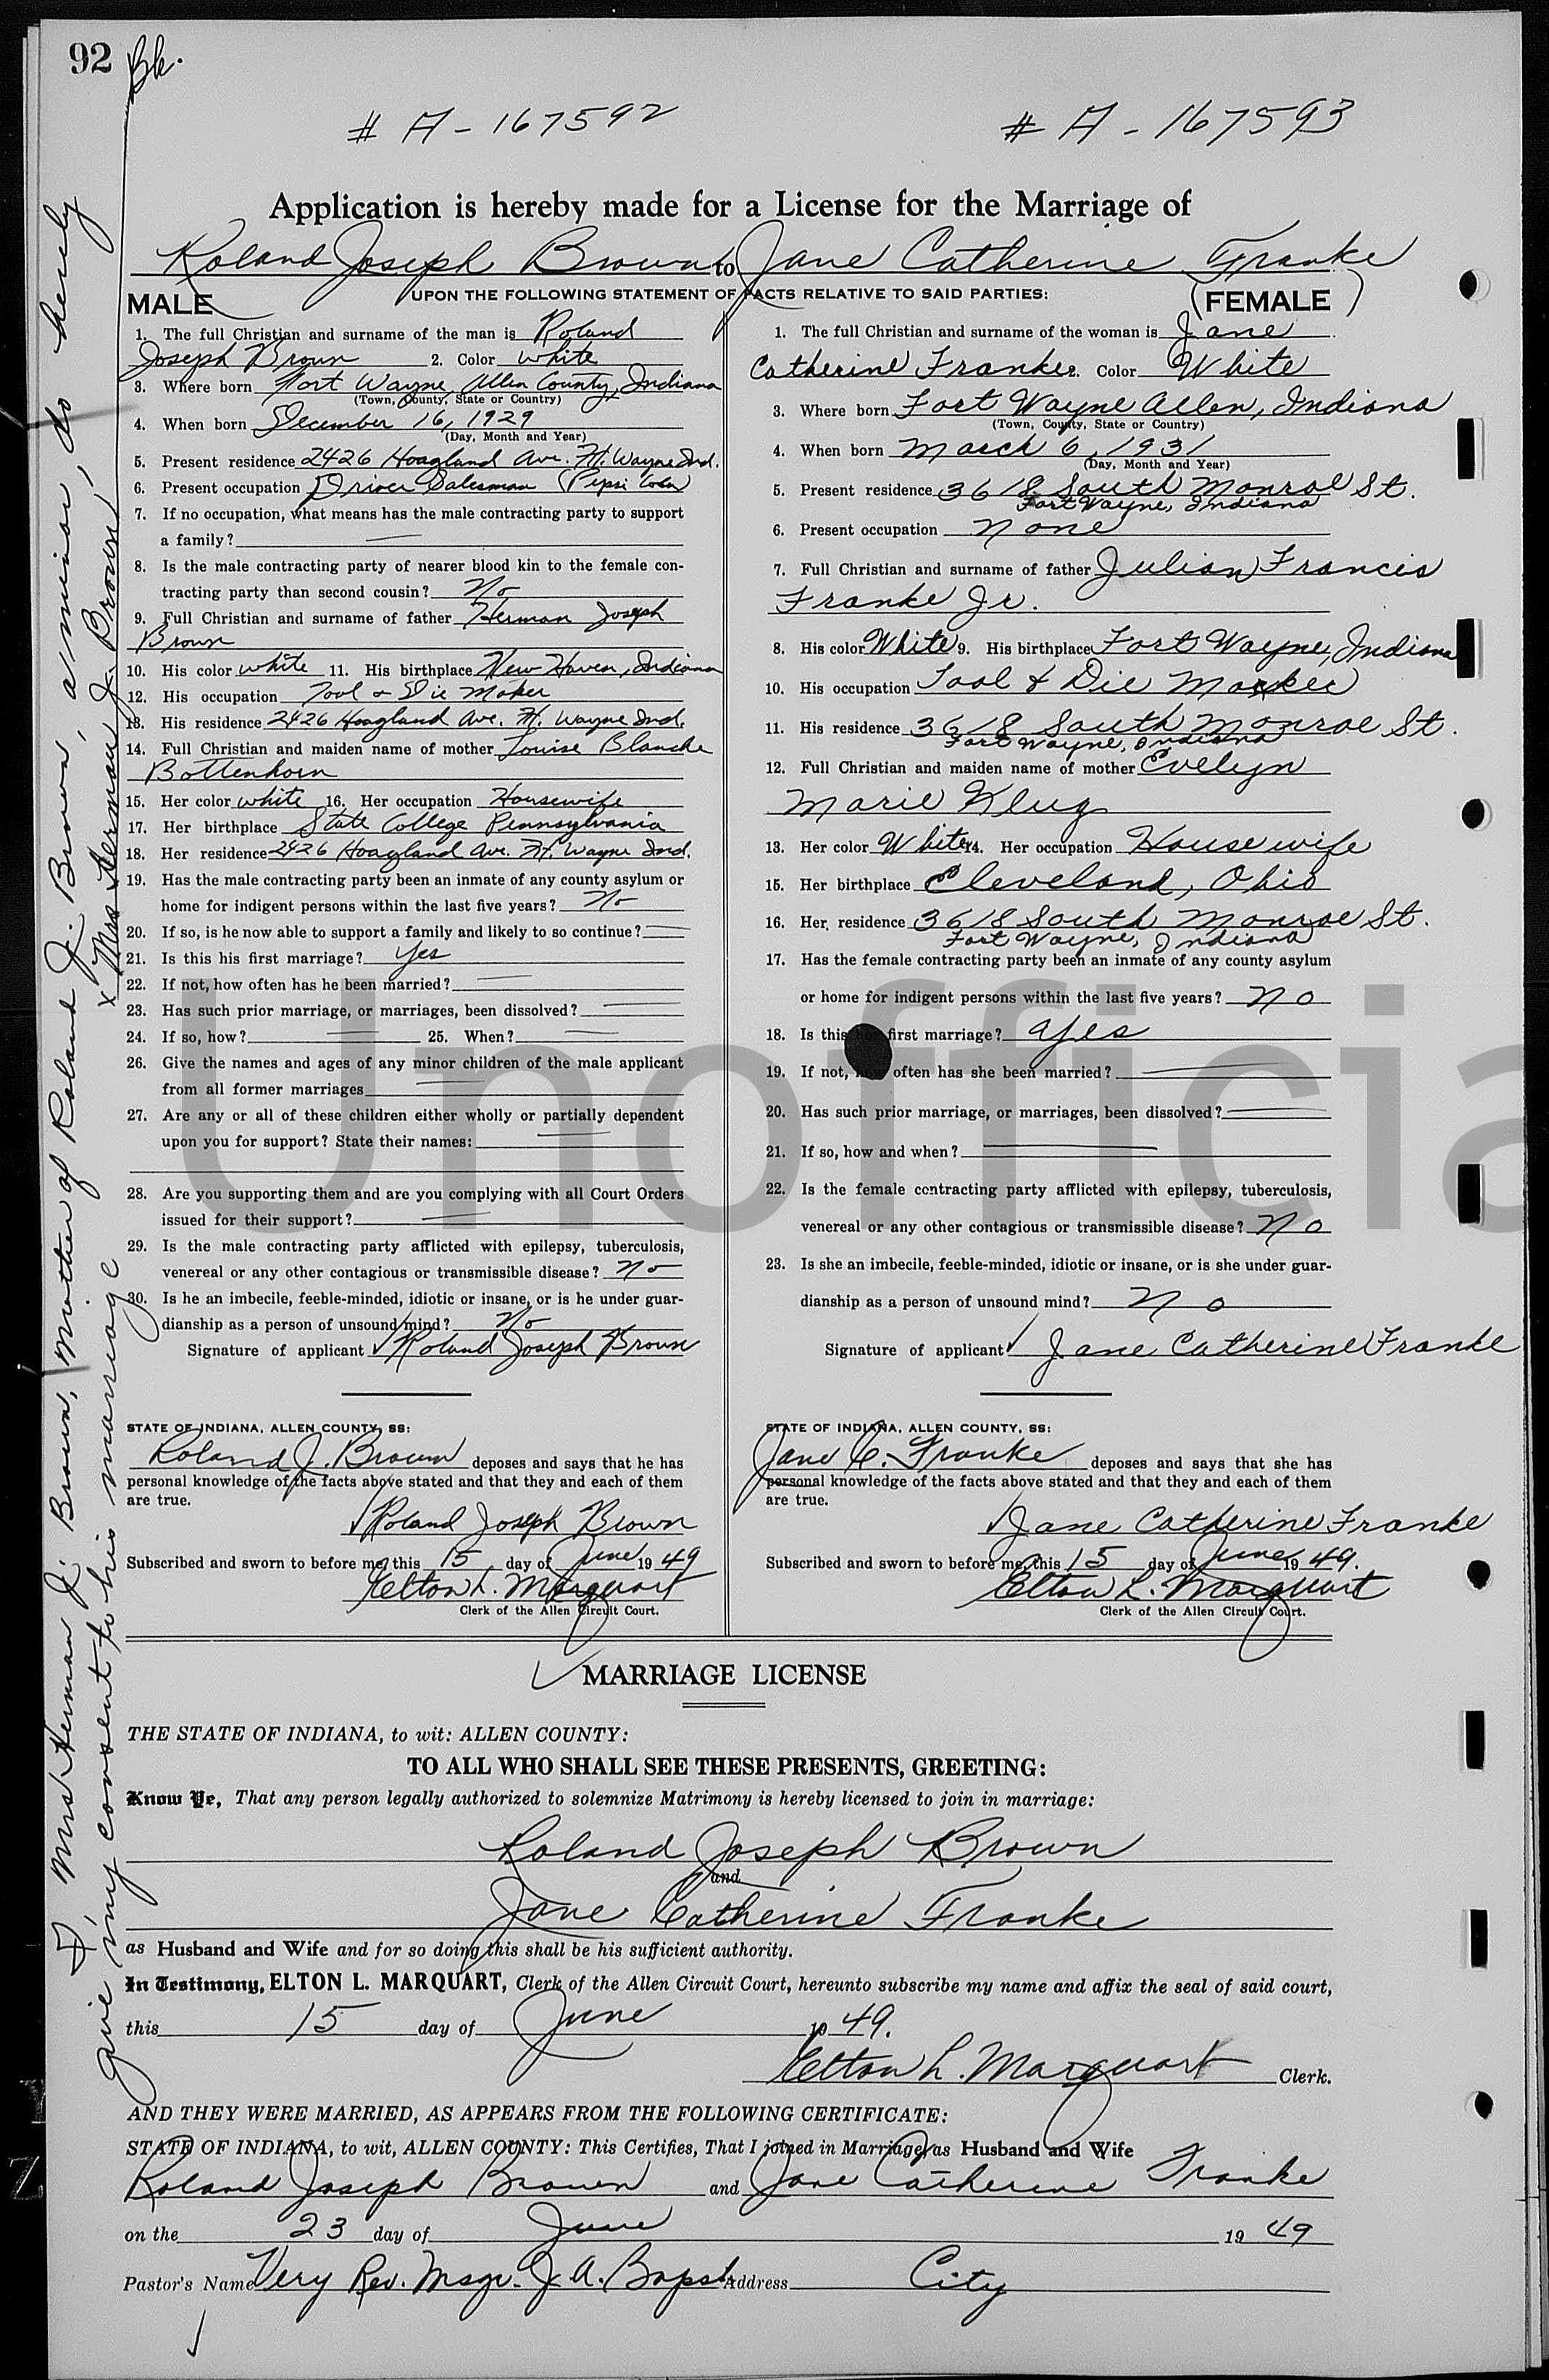 92 Bk.
# A - 167592
# A - 167593
Application is hereby made for a License for the Marriage of
Roland Joseph Brown to Jane Catherine Franke
UPON THE FOLLOWING STATEMENT OF FACTS RELATIVE TO SAID PARTIES:
MALE
1. The full Christian and surname of the man is Roland
Joseph Brown 2. Color white
3. Where born Fort Wayne, Allen County, Indiana
(Town, County, State or Country)
4. When born December 16, 1929
(Day, Month and Year)
5. Present residence 2426 Hoagland Ave. Ft. Wayne Ind.
6. Present occupation Driver Salesman (Pepsi Cola)
7. If no occupation, what means has the male contracting party to support
a family?
8. Is the male contracting party of nearer blood kin to the female con-
tracting party than second cousin? No
9. Full Christian and surname of father Herman Joseph
Brown
10. His color white 11. His birthplace New Haven, Indiana
12. His occupation Tool & Die Maker
13. His residence 2426 Hoagland Ave. Ft. Wayne Ind.
14. Full Christian and maiden name of mother Louise Blanche
Bottenhorn
15. Her color white 16. Her occupation Housewife
17. Her birthplace State College Pennsylvania
18. Her residence 2426 Hoagland Ave. Ft. Wayne Ind.
19. Has the male contracting party been an inmate of any county asylum or
home for indigent persons within the last five years? No
20. If so, is he now able to support a family and likely to so continue?
21. Is this his first marriage? Yes
22. If not, how often has he been married?
23. Has such prior marriage, or marriages, been dissolved?
24. If so, how? 25. When?
26. Give the names and ages of any minor children of the male applicant
from all former marriages
27. Are any or all of these children either wholly or partially dependent
upon you for support? State their names:
28. Are you supporting them and are you complying with all Court Orders
issued for their support?
29. Is the male contracting party afflicted with epilepsy, tuberculosis,
venereal or any other contagious or transmissible disease? No
30. Is he an imbecile, feeble-minded, idiotic or insane, or is he under guar-
dianship as a person of unsound mind? No
Signature of applicant Roland Joseph Brown
STATE OF INDIANA, ALLEN COUNTY, SS:
Roland J. Brown deposes and says that he has
personal knowledge of the facts above stated and that they and each of them
are true.
Roland Joseph Brown
Subscribed and sworn to before me, this 15 day of June 1949
Elton L. Marquart
Clerk of the Allen Circuit Court.
FEMALE
1. The full Christian and surname of the woman is Jane
Catherine Franke 2. Color White
3. Where born Fort Wayne Allen, Indiana
(Town, County, State or Country)
4. When born March 6, 1931
(Day, Month and Year)
5. Present residence 3618 South Monroe St.
Fort Wayne, Indiana
6. Present occupation None
7. Full Christian and surname of father Julian Francis
Franke Jr.
8. His color White 9. His birthplace Fort Wayne, Indiana
10. His occupation Tool & Die Maker
11. His residence 3618 South Monroe St.
Fort Wayne, Indiana
12. Full Christian and maiden name of mother Evelyn
Marie Klug
13. Her color White 14. Her occupation Housewife
15. Her birthplace Cleveland, Ohio
16. Her residence 3618 South Monroe St.
Fort Wayne, Indiana
17. Has the female contracting party been an inmate of any county asylum
or home for indigent persons within the last five years? No
18. Is this first marriage? Yes
19. If not, often has she been married?
20. Has such prior marriage, or marriages, been dissolved?
21. If so, how and when?
22. Is the female contracting party afflicted with epilepsy, tuberculosis,
venereal or any other contagious or transmissible disease? No
23. Is she an imbecile, feeble-minded, idiotic or insane, or is she under guar-
dianship as a person of unsound mind? No
Signature of applicant Jane Catherine Franke
STATE OF INDIANA, ALLEN COUNTY, SS:
Jane C. Franke deposes and says that she has
personal knowledge of the facts above stated and that they and each of them
are true.
Jane Catherine Franke
Subscribed and sworn to before me, this 15 day of June 1949.
Elton L. Marquart
Clerk of the Allen Circuit Court.
MARRIAGE LICENSE
THE STATE OF INDIANA, to wit: ALLEN COUNTY:
TO ALL WHO SHALL SEE THESE PRESENTS, GREETING:
Know Ye, That any person legally authorized to solemnize Matrimony is hereby licensed to join in marriage:
Roland Joseph Brown
and
Jane Catherine Franke
as Husband and Wife and for so doing this shall be his sufficient authority.
In Testimony, ELTON L. MARQUART, Clerk of the Allen Circuit Court, hereunto subscribe my name and affix the seal of said court,
this 15 day of June 1949.
Elton L. Marquart Clerk.
AND THEY WERE MARRIED, AS APPEARS FROM THE FOLLOWING CERTIFICATE:
STATE OF INDIANA, to wit, ALLEN COUNTY: This Certifies, That I joined in Marriage as Husband and Wife
Roland Joseph Brown and Jane Catherine Franke
on the 23 day of June 1949
Pastor's Name Very Rev. Msgr. J. A. Bapst Address City
I, Mrs Herman J. Brown, Mother of Roland J. Brown, a minor, do herely
give my consent to his marriage
x Mrs Herman J. Brown
Unofficia